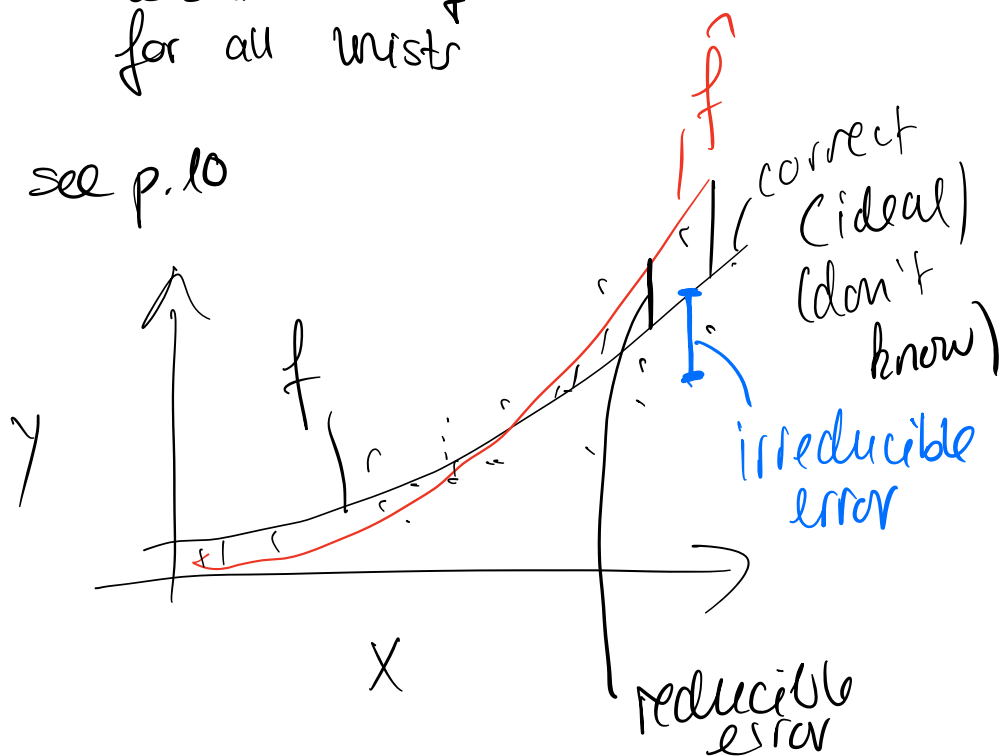 for all
see p.10
f̂
correct
(ideal)
(don't
know)
f
y
irreducible
error
X
reducible
error